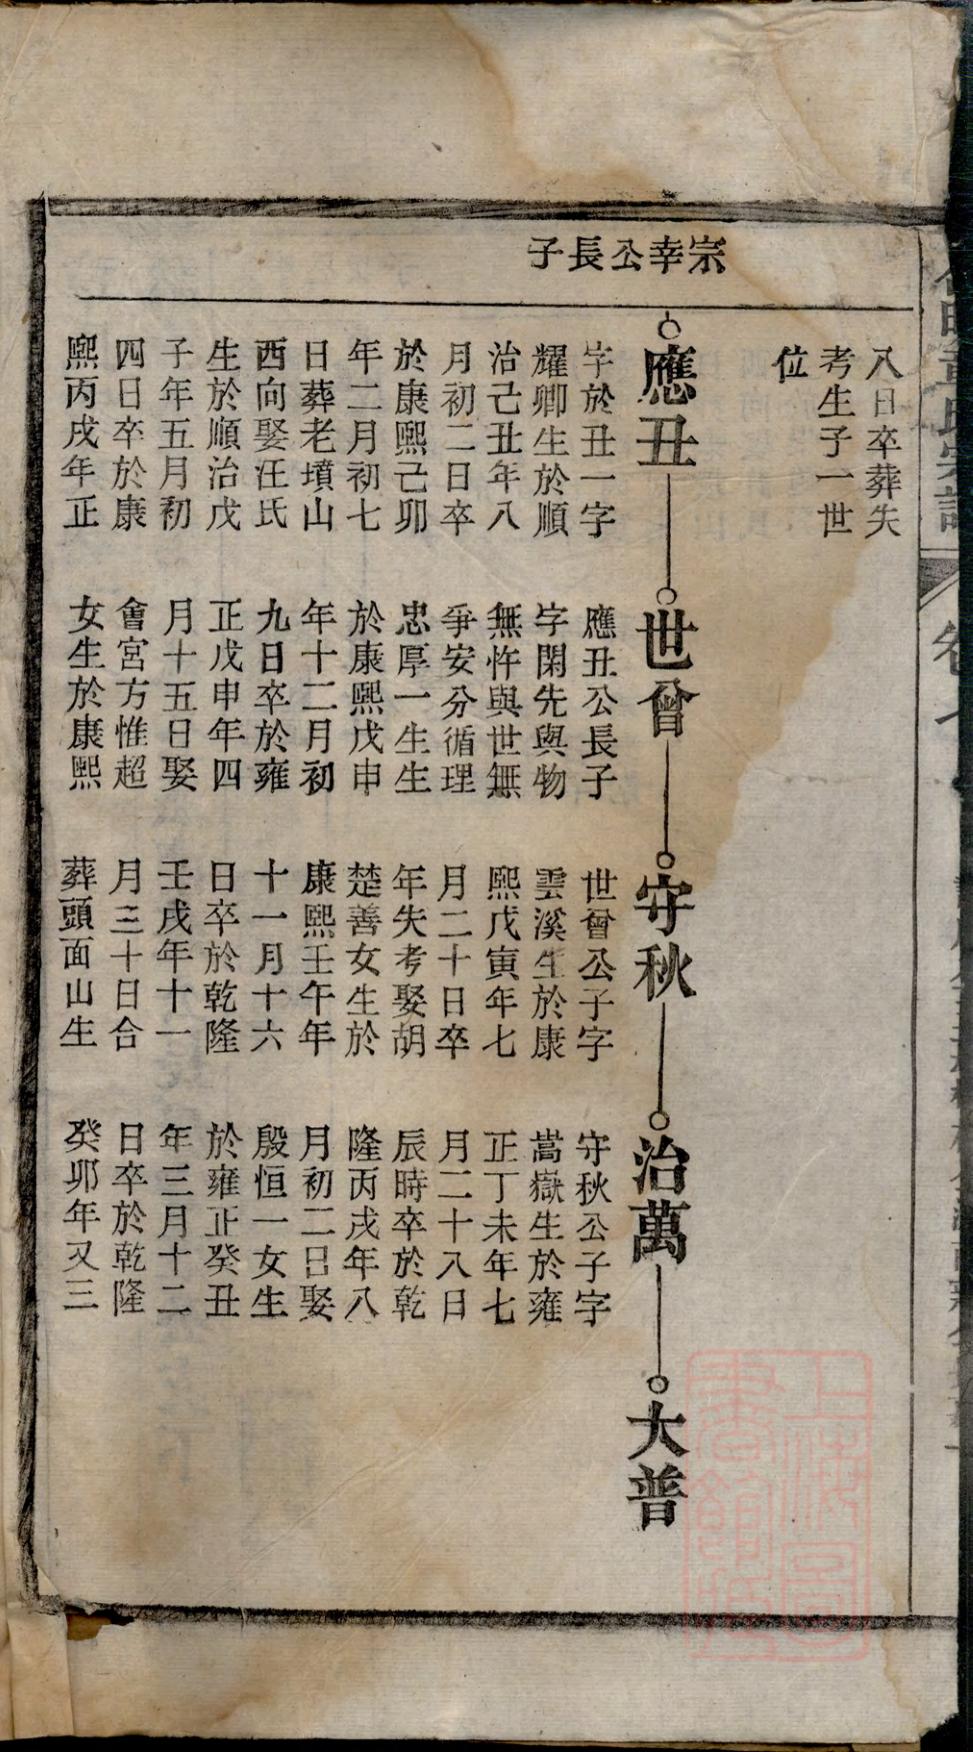 宗幸公長子
八日卒葬失
考生子一世
位
應丑
字於丑一字
耀卿生於順
治己丑年八
月初二日卒
於康熙己卯
年二月初七
日葬老墳山
西向娶汪氏
生於順治戊
子年五月初
四日卒於康
熙丙戌年正
世會
應丑公長子
字閑先與物
無忤與世無
爭安分循理
忠厚一生生
於康熙戊申
年十二月初
九日卒於雍
正戊申年四
月十五日娶
會宮方惟超
女生於康熙
守秋
世會公子字
雲溪生於康
熙戊寅年七
月二十日卒
年失考娶胡
楚善女生於
康熙壬午年
十一月十六
日卒於乾隆
壬戌年十一
月三十日合
葬頭面山生
治萬
守秋公子字
嵩嶽生於雍
正丁未年七
月二十八日
辰時卒於乾
隆丙戌年八
月初二日娶
殷恒一女生
於雍正癸丑
年三月十二
日卒於乾隆
癸卯年又三
大普